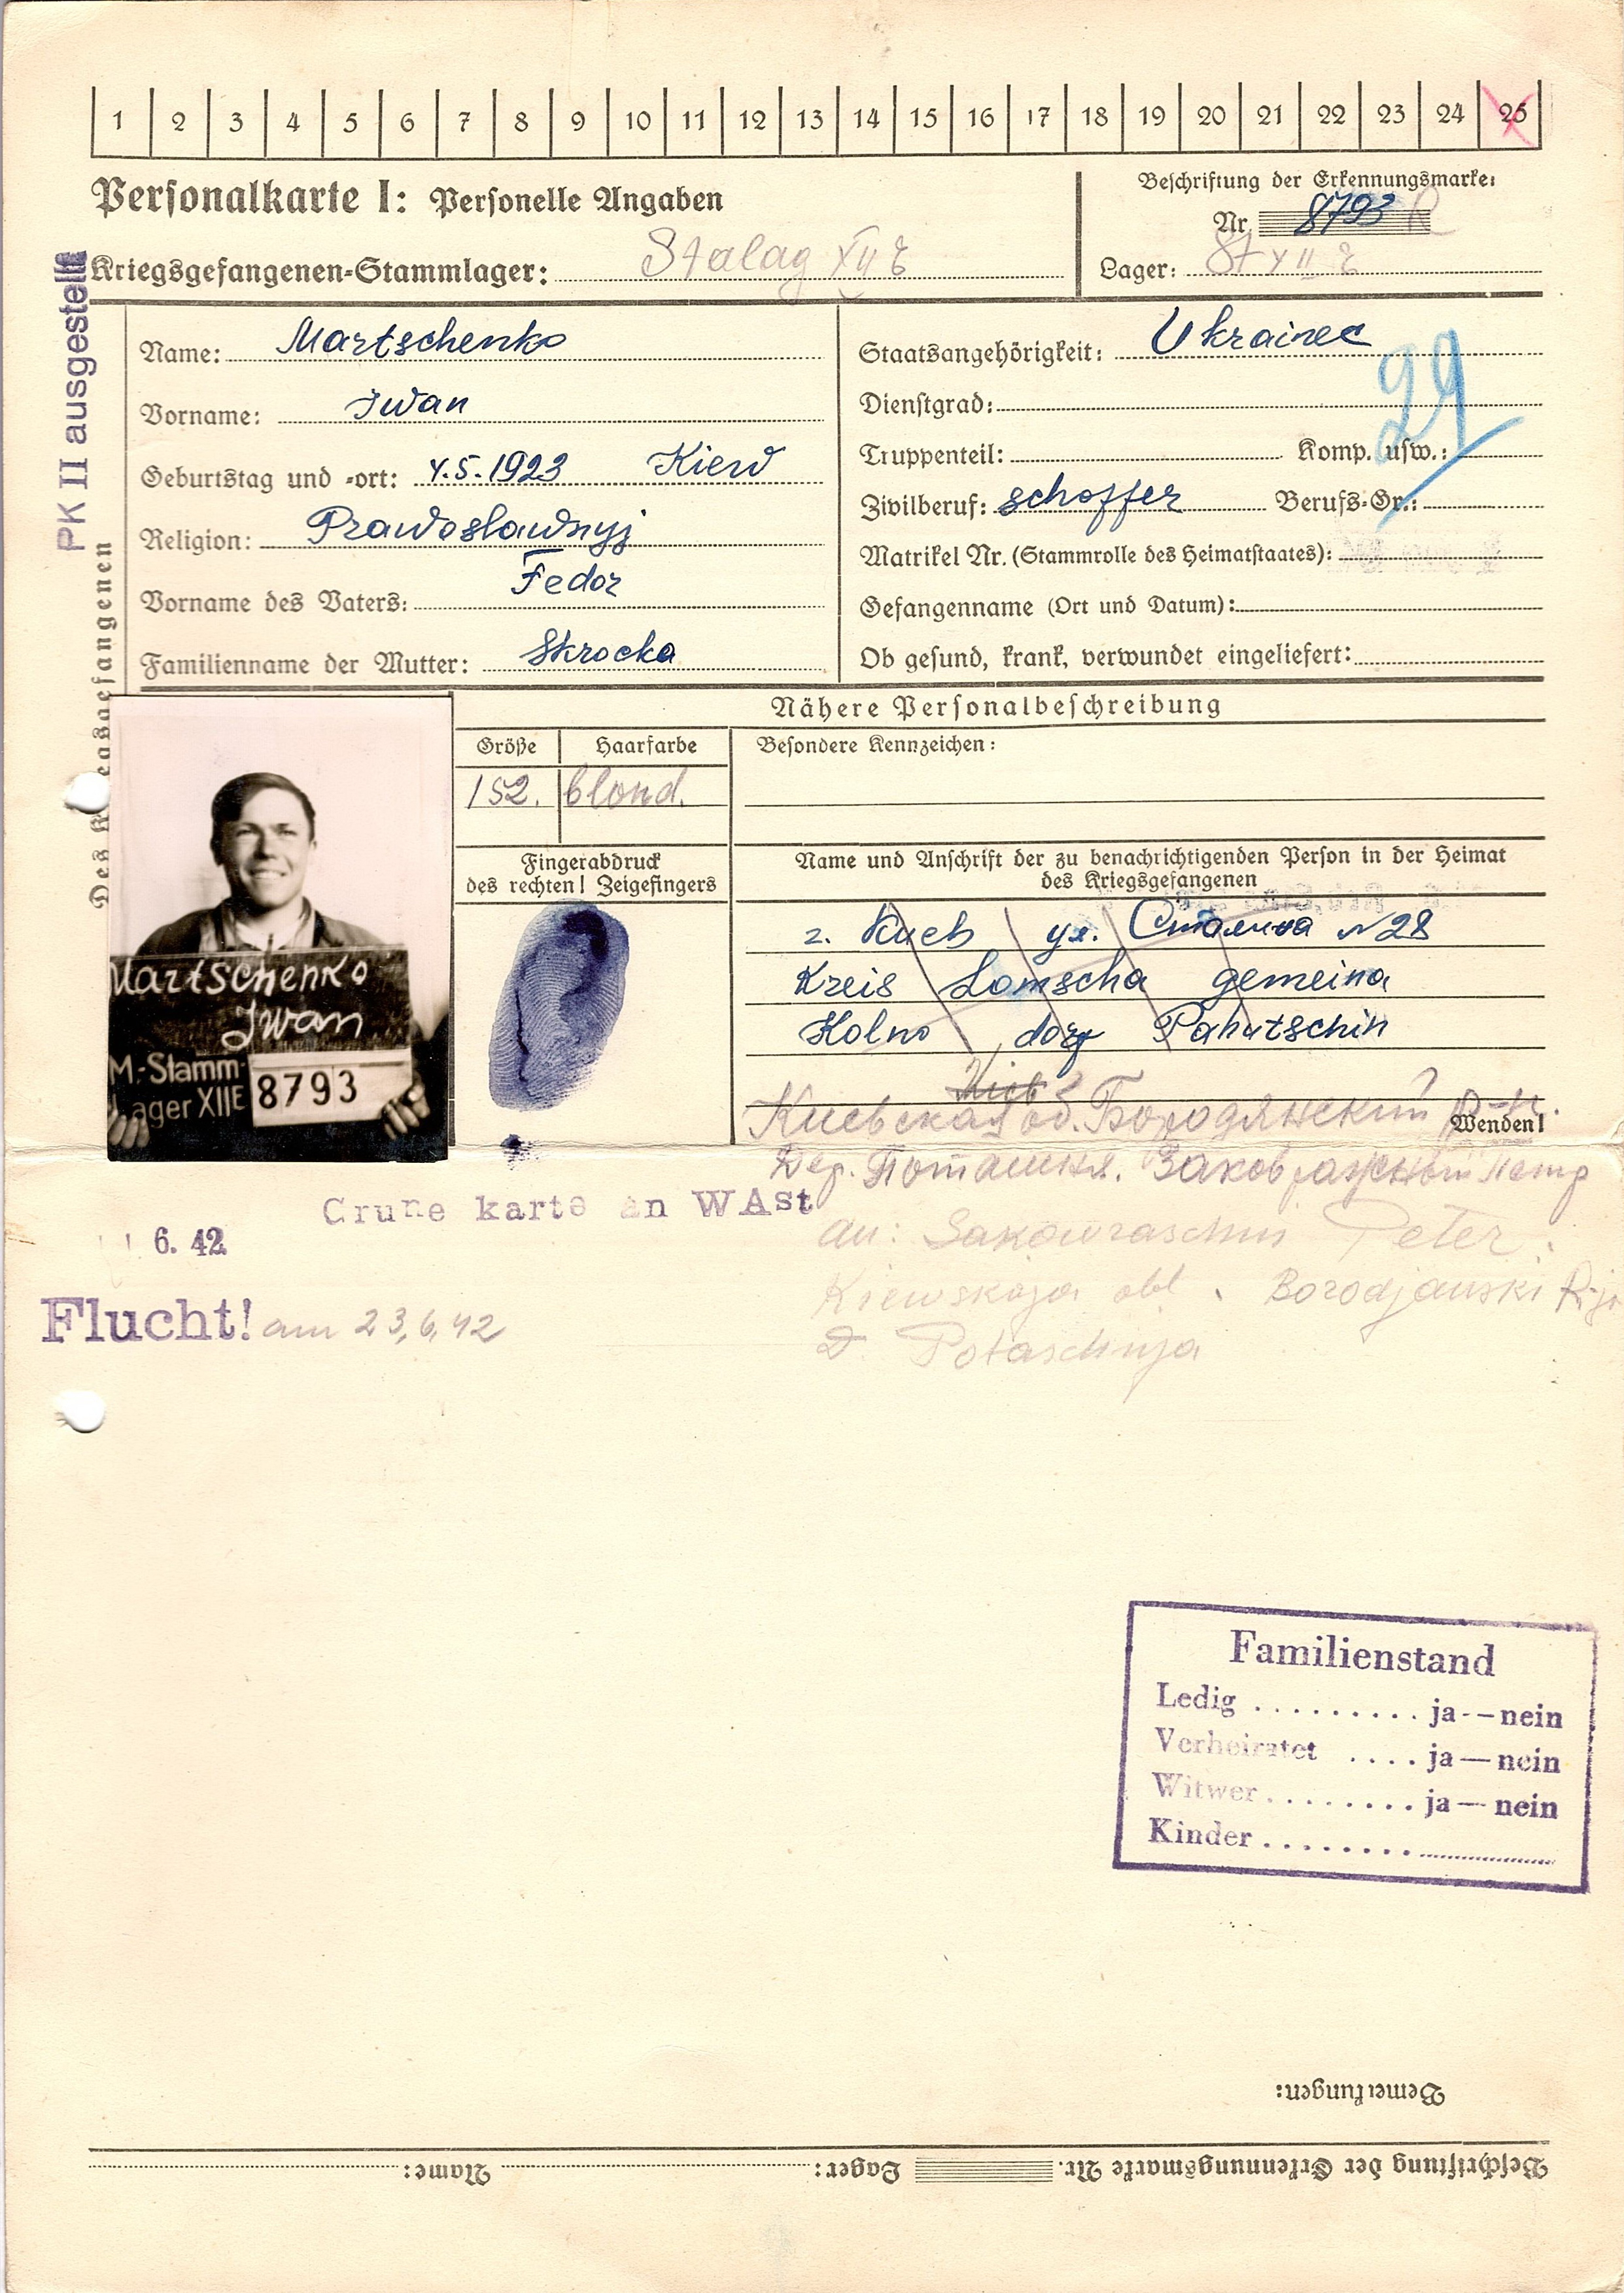 1 2 3 4 5 6 7 8 9 10 11 12 13 14 15 16 17 18 19 20 21 22 23 24 25
Personalkarte I: Personelle Angaben
Beschriftung der Erkennungsmarke:
Nr. 8793 R
Kriegsgefangenen-Stammlager: Stalag XII E
Lager: St XII E
PK II ausgestellt
Des K egsgefangenen
Name: Martschenko
Vorname: Iwan
Geburtstag und -ort: 4.5.1923 Kiew
Religion: Prawoslawnyj
Vorname des Vaters: Fedor
Familienname der Mutter: Skrocka
Staatsangehörigkeit: Ukrainec
29
Dienstgrad:
Truppenteil: Komp. usw.:
Zivilberuf: schoffer Berufs-Gr.:
Matrikel Nr. (Stammrolle des Heimatstaates):
Gefangenname (Ort und Datum):
Ob gesund, krank, verwundet eingeliefert:
Nähere Personalbeschreibung
Größe Haarfarbe
152. blond.
Besondere Kennzeichen:
Fingerabdruck
des rechten! Zeigefingers
Name und Anschrift der zu benachrichtigenden Person in der Heimat
des Kriegsgefangenen
г. Киев ул. Сталина №28
Kreis Lomscha gemeina
Kolno dorf Pahutschin
Martschenko
Iwan
M.-Stamm-
lager XII E 8793
Киевская об. Бородянский р-н.
Wenden!
Дер. Поташня.
Grune karte an WAst
6. 42
an: Sakowraschin Peter.
Kiewskaja obl. Borodjanski
D. Potaschnja
Flucht! am 23.6.42
Familienstand
Ledig ......... ja--nein
Verheiratet .... ja—nein
Witwer ........ ja—nein
Kinder ........
Bemerkungen:
Beschriftung der Erkennungsmarke Nr. Lager: Name: